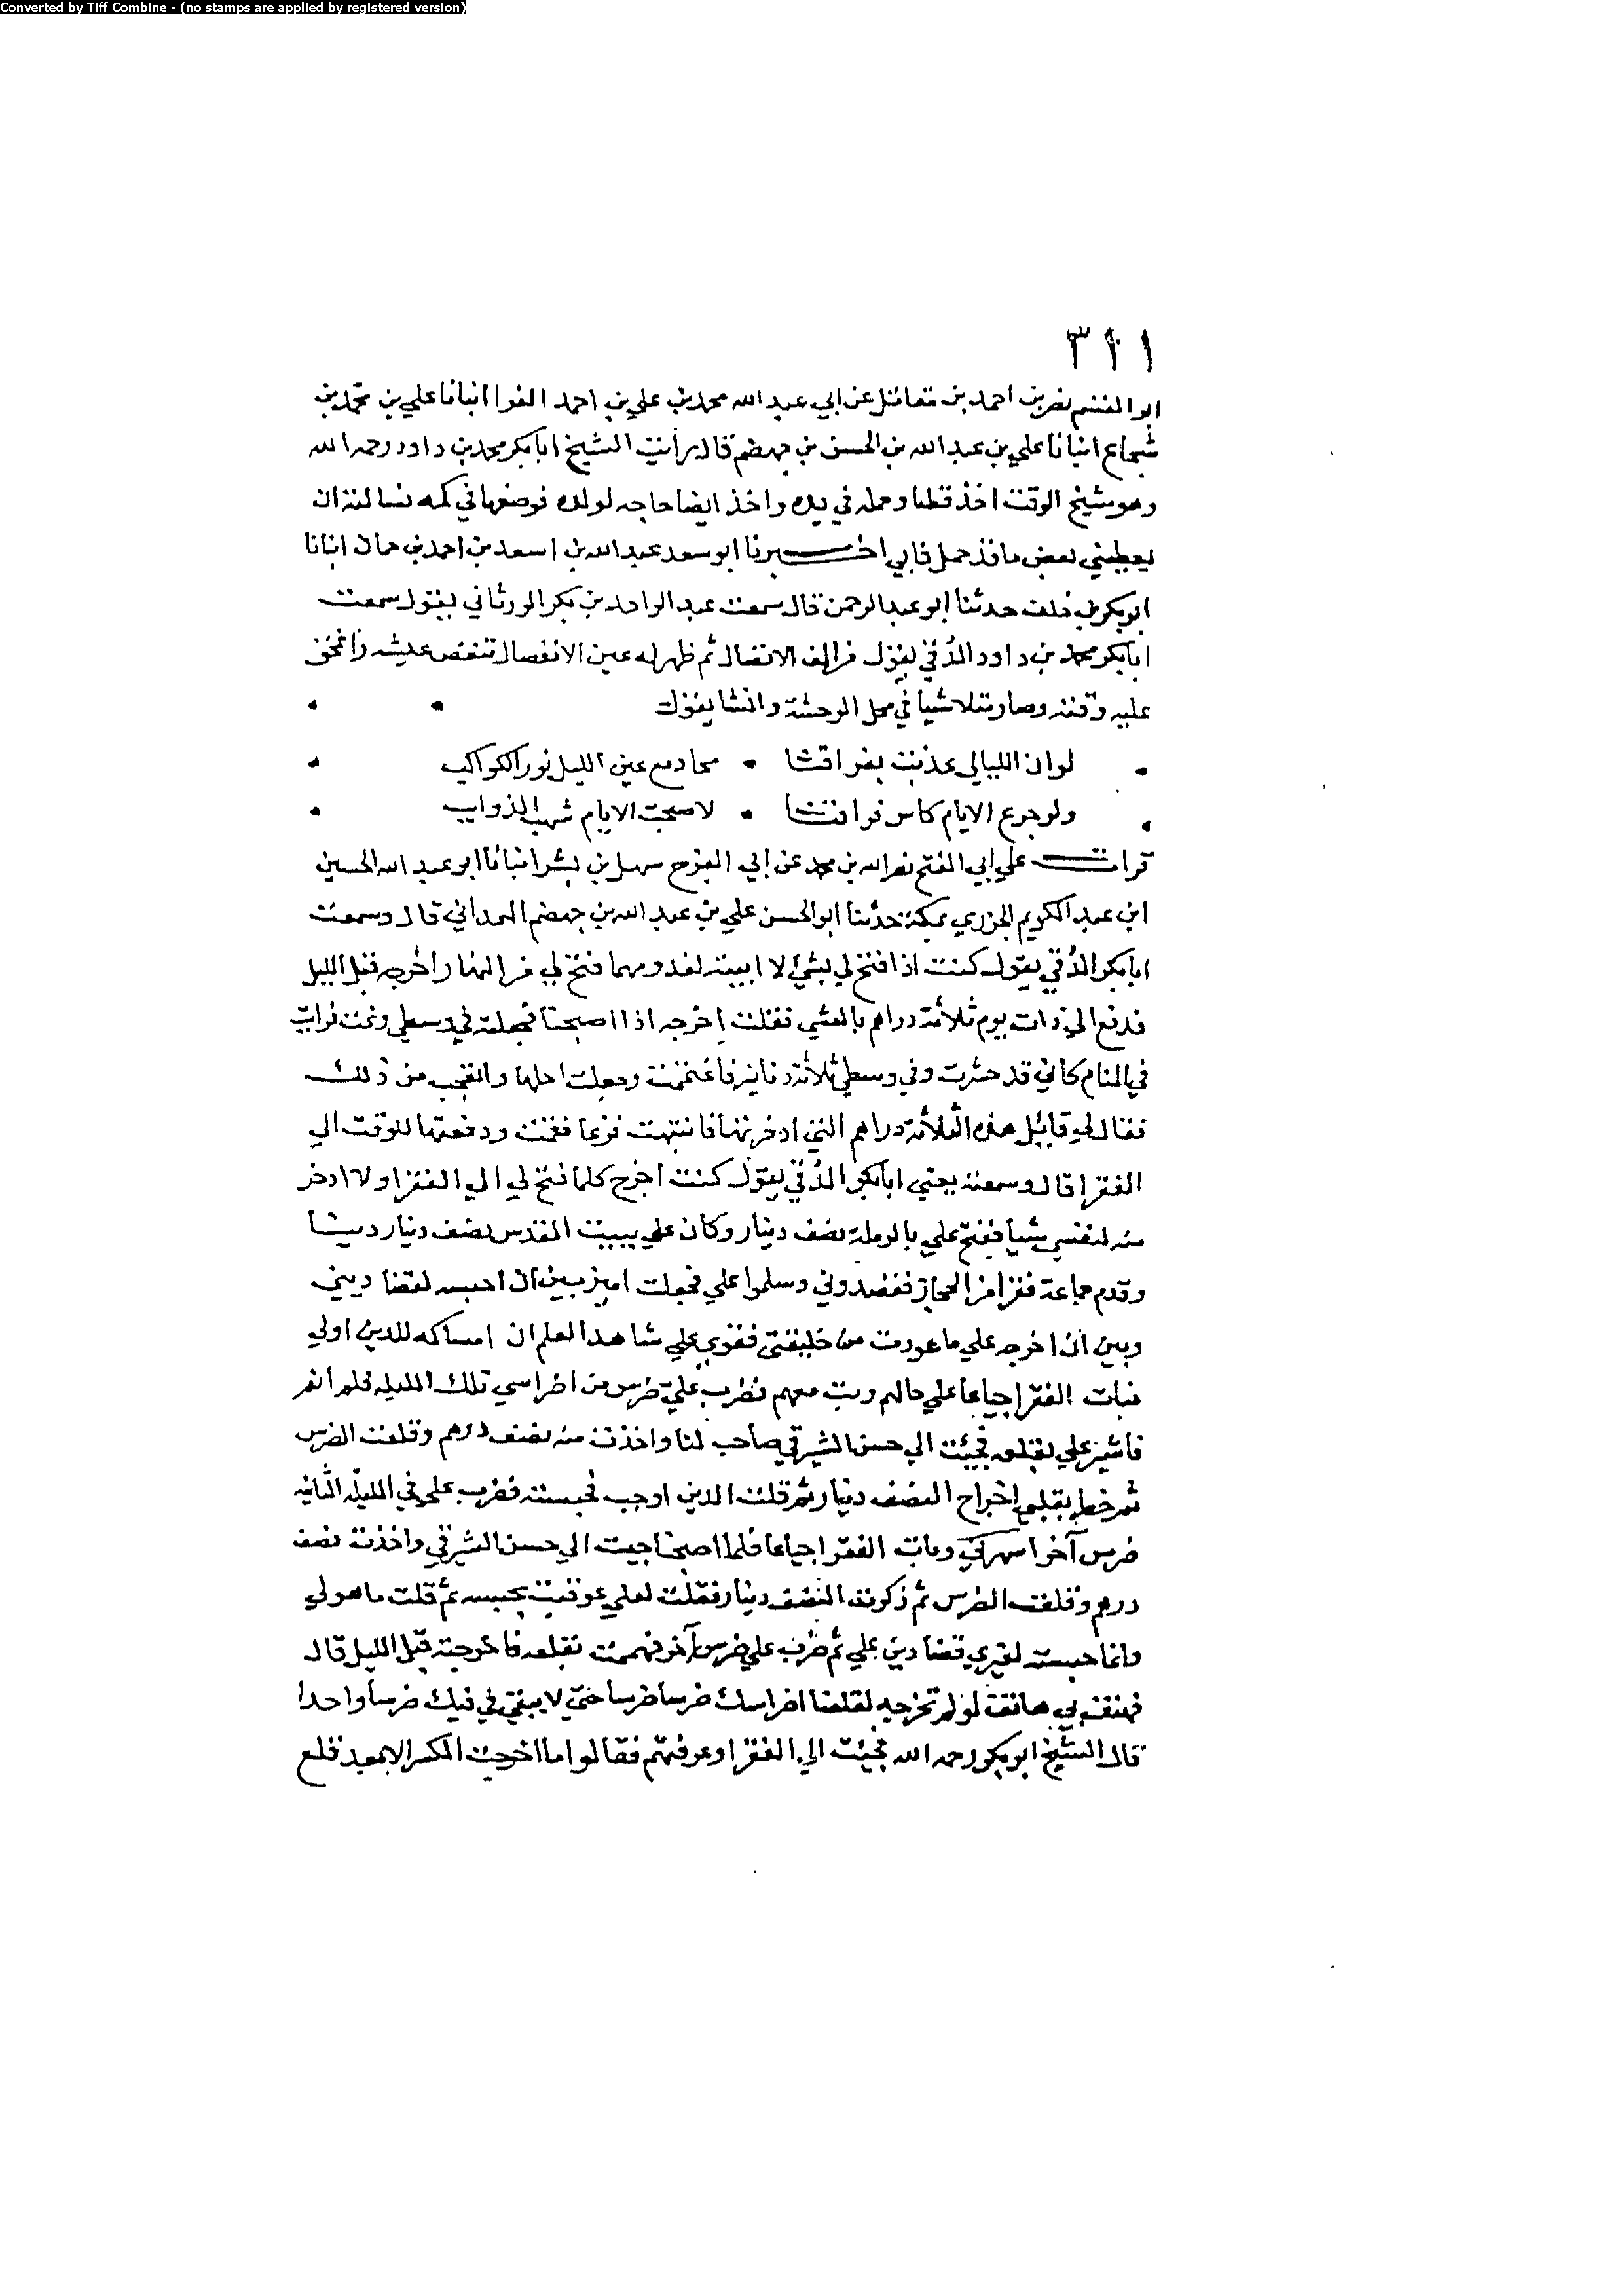 Converted by Tiff Combine - (no stamps are applied by registered version)
٣٢١
ابو القسم نصر بن احمد بن مقاتل عن ابي عبد الله محمد بن علي بن احمد الفرا انبانا علي بن محمد بن
شجاع انبانا علي بن عبد الله بن الحسن بن جهضم قال رأيت الشيخ ابا بكر محمد بن داود رحمه الله
وهو شيخ الوقت اخذ قطنا وحمله في يده واخذ ايضا حاجه لولده فوضعها في كمه فسالته ان
يعطيني بعض ما قد حمل فابى اخبرنا ابو سعد عبد الله بن اسعد بن احمد بن حيان انبانا
ابو بكر بن خلف حدثنا ابو عبد الرحمن قال سمعت عبد الواحد بن بكر الورثاني يقول سمعت
ابا بكر محمد بن داود الدُقي يقول من الف الاتصال ثم ظهر له عين الانفصال تنغص عيشه وانمحق
عليه وقته وصار متلاشيا في محل الوحشة وانشا يقول
لو ان الليالي عذبت بفراقنا • محا دمع عين الليل نور الكواكب
ولو جرع الايام كاس فراقنا • لاصبحت الايام شهب الذوايب
قرات علي ابي الفتح نصر الله بن محمد عن ابي الفرج سهل بن بشر انبانا ابو عبد الله الحسين
ابن عبد الكريم الجزري بمكة حدثنا ابو الحسن علي بن عبد الله بن جهضم الهمداني قال وسمعت
ابا بكر الدُقي يقول كنت اذا فتح لي بشئ لا ابيته لغد ومهما فتح لي من النهار اخرجه قبل الليل
فدفع الي ذات يوم ثلاثة دراهم بالعشي فقلت اخرجه اذا اصبحنا فجعلته في وسطي ونمت فرايت
في المنام كاني قد حشرت وفي وسطي ثلاثة دنانير فاغتممت وجعلت احلها واتعجب من ذلك
فقال لي قائل هذه الثلاثة دراهم التي ادخرتها فانتبهت فزعا فقمت ودفعتها للوقت الي
الفقرا قال وسمعته يعني ابا بكر الدُقي يقول كنت اخرج كلما فتح لي الي الفقرا ولا ادخر
منه لنفسي شيأ ففتح علي بالرملة نصف دينار وكان علي ببيت المقدس نصف دينار دينا
وقدم جماعة فقرا من الحجاز فقصدوني وسلموا علي فجعلت اميز بين ان احبسه لقضا ديني
وبين ان اخرجه علي ما عودت من خليقتي فقوي علي شاهد العلم ان امساكه للدين اولي
فبات الفقرا جياعا علي حالهم وبت معهم فضرب عليّ ضرس من اضراسي تلك الليله فلم انم
فاشير علي بقلعه فجيئت الي حسن الشيرقي صاحب لنا واخذت منه نصف درهم وقلعت الضرس
ثم خطر بقلبي اخراج النصف دينار ثم قلت الدين اوجب فحبسته فضرب علي في الليلة الثانيه
ضرس آخر اسهرني وبات الفقرا جياعا فلما اصبحنا جيت الي حسن الشيرقي واخذت نصف
درهم وقلعت الضرس ثم ذكرت النصف دينار فقلت لعلي عوقبت بحبسه ثم قلت ما هو لي
وانما حبسته لغيري قضا دين علي ثم ضرب علي ضرس آخر فهممت بقلعه فاخرجته قبل الليل قال
فهتف بي هاتف لو لم تخرجه لقلعنا اضراسك ضرسا ضرسا حتي لا يبقي في فيك ضرسا واحدا
قال الشيخ ابو بكر رحمه الله فجيئت الي الفقرا وعرفتهم فقالوا ما اخرجت الكسر الا بعد قلع